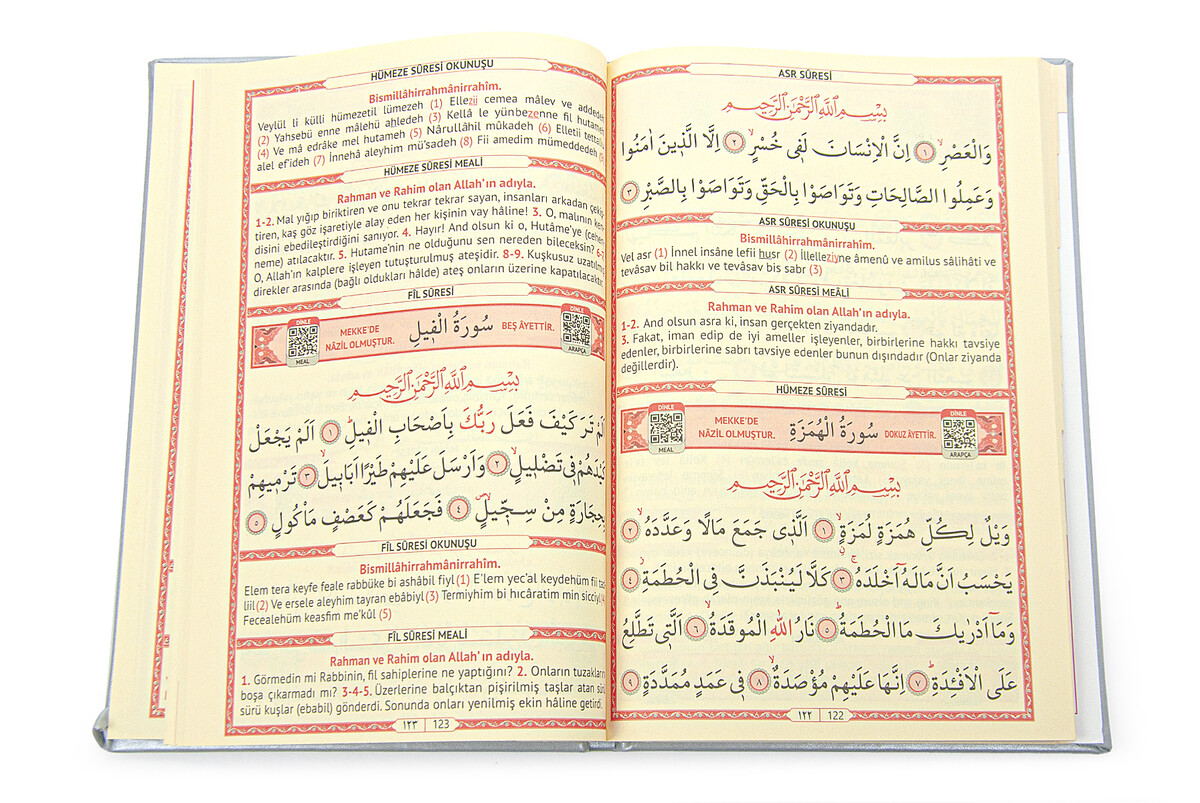 ASR SÛRESİ
بِسْمِ اللّٰهِ الرَّحْمٰنِ الرَّحِيمِ
وَالْعَصْرِۙ ﴿١﴾ اِنَّ الْاِنْسَانَ لَف۪ي خُسْرٍۙ ﴿٢﴾ اِلَّا الَّذ۪ينَ اٰمَنُوا
وَعَمِلُوا الصَّالِحَاتِ وَتَوَاصَوْا بِالْحَقِّ وَتَوَاصَوْا بِالصَّبْرِ ﴿٣﴾
ASR SÛRESİ OKUNUŞU
Bismillâhirrahmânirrahîm.
Vel asr (1) İnnel insâne lefii husr (2) İllelleziyne âmenû ve amilus sâlihâti ve
tevâsav bil hakkı ve tevâsav bis sabr (3)
ASR SÛRESİ MEÂLİ
Rahman ve Rahim olan Allah'ın adıyla.
1-2. And olsun asra ki, insan gerçekten ziyandadır.
3. Fakat, iman edip de iyi ameller işleyenler, birbirlerine hakkı tavsiye
edenler, birbirlerine sabrı tavsiye edenler bunun dışındadır (Onlar ziyanda
değillerdir).
HÜMEZE SÛRESİ
DİNLE
MEAL
MEKKE'DE
NÂZİL OLMUŞTUR.
سُورَةُ الْهُمَزَةِ
DOKUZ ÂYETTİR.
DİNLE
ARAPÇA
بِسْمِ اللّٰهِ الرَّحْمٰنِ الرَّحِيمِ
وَيْلٌ لِكُلِّ هُمَزَةٍ لُمَزَةٍۙ ﴿١﴾ اَلَّذ۪ي جَمَعَ مَالًا وَعَدَّدَهُۙ ﴿٢﴾
يَحْسَبُ اَنَّ مَالَهُٓ اَخْلَدَهُۚ ﴿٣﴾ كَلَّا لَيُنْبَذَنَّ فِي الْحُطَمَةِۘ ﴿٤﴾
وَمَٓا اَدْرٰيكَ مَا الْحُطَمَةُۜ ﴿٥﴾ نَارُ اللّٰهِ الْمُوقَدَةُۙ ﴿٦﴾ اَلَّت۪ي تَطَّلِعُ
عَلَى الْاَفْـِٔدَةِۜ ﴿٧﴾ اِنَّهَا عَلَيْهِمْ مُؤْصَدَةٌۙ ﴿٨﴾ ف۪ي عَمَدٍ مُمَدَّدَةٍ ﴿٩﴾
١٢٢ 122
HÜMEZE SÛRESİ OKUNUŞU
Bismillâhirrahmânirrahîm.
Veylül li külli hümezetil lümezeh (1) Ellezii cemea mâlev ve addedeh
(2) Yahsebü enne mâlehü ahledeh (3) Kellâ le yünbezenne fil hutameh
(4) Ve mâ edrâke mel hutameh (5) Nârullâhil mûkadeh (6) Elletii
alel ef'ideh (7) İnnehâ aleyhim mü'sadeh (8) Fii amedim mümeddedeh
HÜMEZE SÛRESİ MEALİ
Rahman ve Rahim olan Allah'ın adıyla.
1-2. Mal yığıp biriktiren ve onu tekrar tekrar sayan, insanları arkadan çekiş-
tiren, kaş göz işaretiyle alay eden her kişinin vay hâline! 3. O, malının ken-
disini ebedileştirdiğini sanıyor. 4. Hayır! And olsun ki o, Hutâme'ye (cehen-
neme) atılacaktır. 5. Hutame'nin ne olduğunu sen nereden bileceksin? 6-7.
O, Allah'ın kalplere işleyen tutuşturulmuş ateşidir. 8-9. Kuşkusuz uzatılmış
direkler arasında (bağlı oldukları hâlde) ateş onların üzerine kapatılacaktır.
FİL SÛRESİ
DİNLE
MEAL
MEKKE'DE
NÂZİL OLMUŞTUR.
سُورَةُ الْف۪يلِ
BEŞ ÂYETTİR.
DİNLE
ARAPÇA
بِسْمِ اللّٰهِ الرَّحْمٰنِ الرَّحِيمِ
اَلَمْ تَرَ كَيْفَ فَعَلَ رَبُّكَ بِاَصْحَابِ الْف۪يلِۜ ﴿١﴾ اَلَمْ يَجْعَلْ
كَيْدَهُمْ ف۪ي تَضْل۪يلٍۙ ﴿٢﴾ وَاَرْسَلَ عَلَيْهِمْ طَيْرًا اَبَاب۪يلَۙ ﴿٣﴾ تَرْم۪يهِمْ
بِحِجَارَةٍ مِنْ سِجّ۪يلٍۙ ﴿٤﴾ فَجَعَلَهُمْ كَعَصْفٍ مَأْكُولٍ ﴿٥﴾
FİL SÛRESİ OKUNUŞU
Bismillâhirrahmânirrahîm.
Elem tera keyfe feale rabbüke bi ashâbil fiyl (1) E'lem yec'al keydehüm fii tad-
liil(2) Ve ersele aleyhim tayran ebâbiyl(3) Termiyhim bi hıcâratim min sicciyl(4)
Fecealehüm keasfim me'kûl (5)
FİL SÛRESİ MEALİ
Rahman ve Rahim olan Allah'ın adıyla.
1. Görmedin mi Rabbinin, fil sahiplerine ne yaptığını? 2. Onların tuzakların
boşa çıkarmadı mı? 3-4-5. Üzerlerine balçıktan pişirilmiş taşlar atan sürü
sürü kuşlar (ebabil) gönderdi. Sonunda onları yenilmiş ekin hâline getirdi.
١٢٣ 123